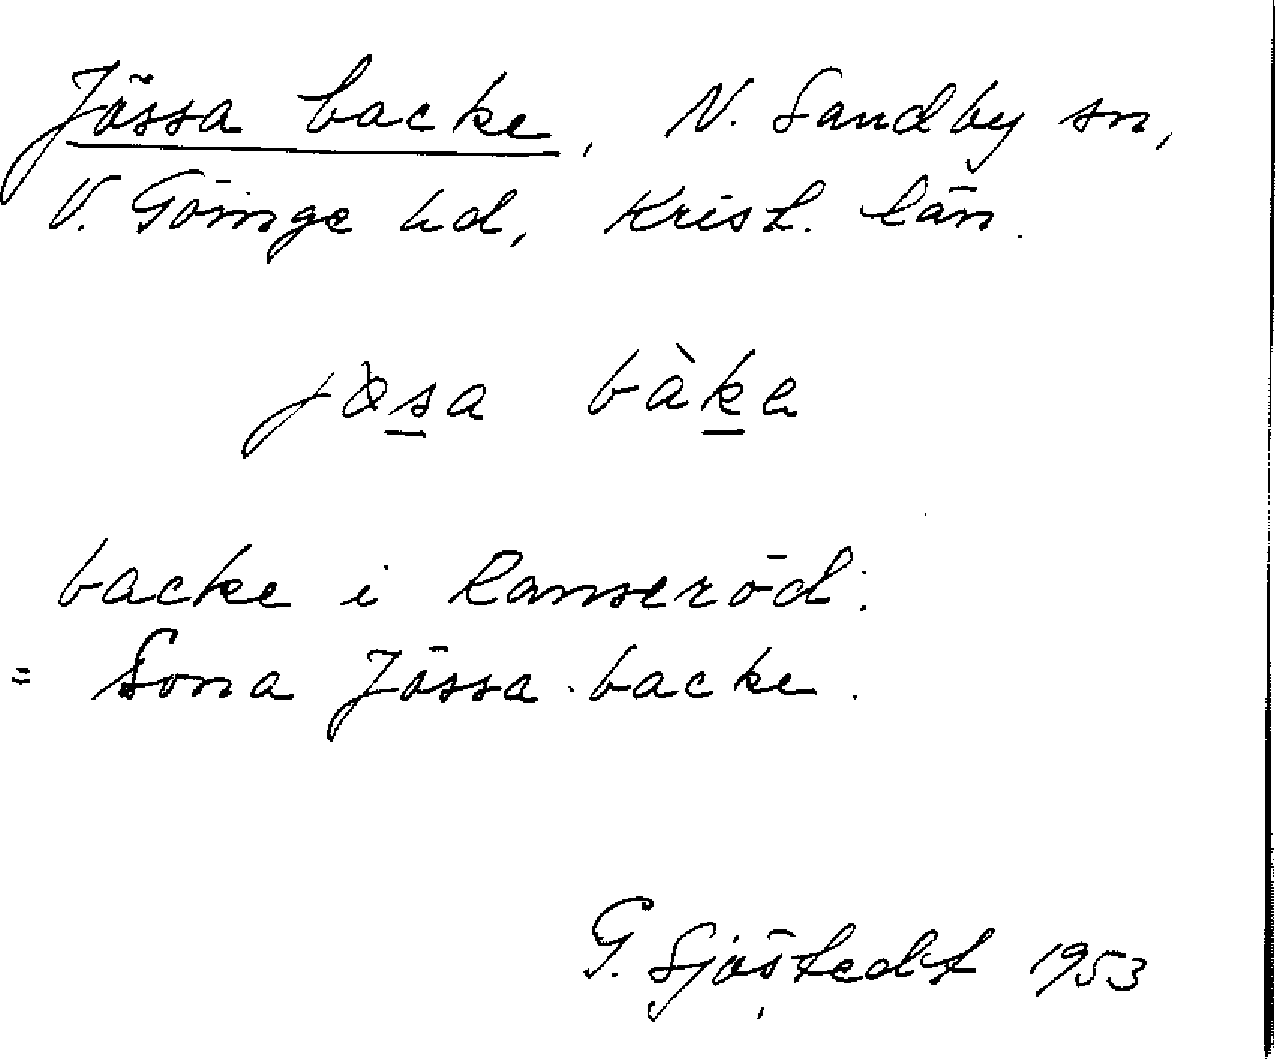 Jössa backe, N. Sandby sn,
V. Göinge hd, Krist. län.
jø̀sa bàkə
backe i Ranseröd.
= Sona Jössa backe.
G. Sjöstedt 1953